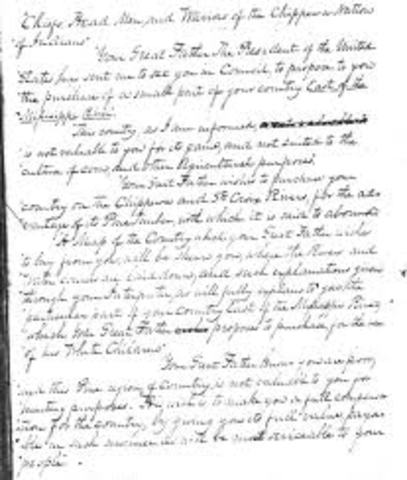 "Chiefs, Head Men, and Warriors of the Chippewa Nation
of Indians"
"Your Great Father The President of the United
States has sent me to see you in Council, to propose to you
the purchase of a small part of your country East of the
Mississippi River."
"This country, as I am informed,
is not valuable to you for its game, and not suited to the
culture of corn, and other Agricultural purposes."
"Your Great Father wishes to purchase your
country on the Chippewa and St Croix Rivers, for the adv
vantage of its Pine Timber, with which it is said to abound"
"A Map of the Country which your Great Father wishes
to buy from you, will be shewn you, where the Rivers and
Water courses are laid down, and such explanations given
through your Interpreter, as will fully explain to you the
particular part of your Country East of the Mississippi River
which Your Great Father proposes to purchase, for the use
of his White Children"
"Your Great Father knows you are poor,
and this Pine region of Country, is not valuable to you for
hunting purposes. His wish is to make you a full compensa
tion for the country, by giving you its full value, paya
ble in such manner as will be most serviceable to your
people".